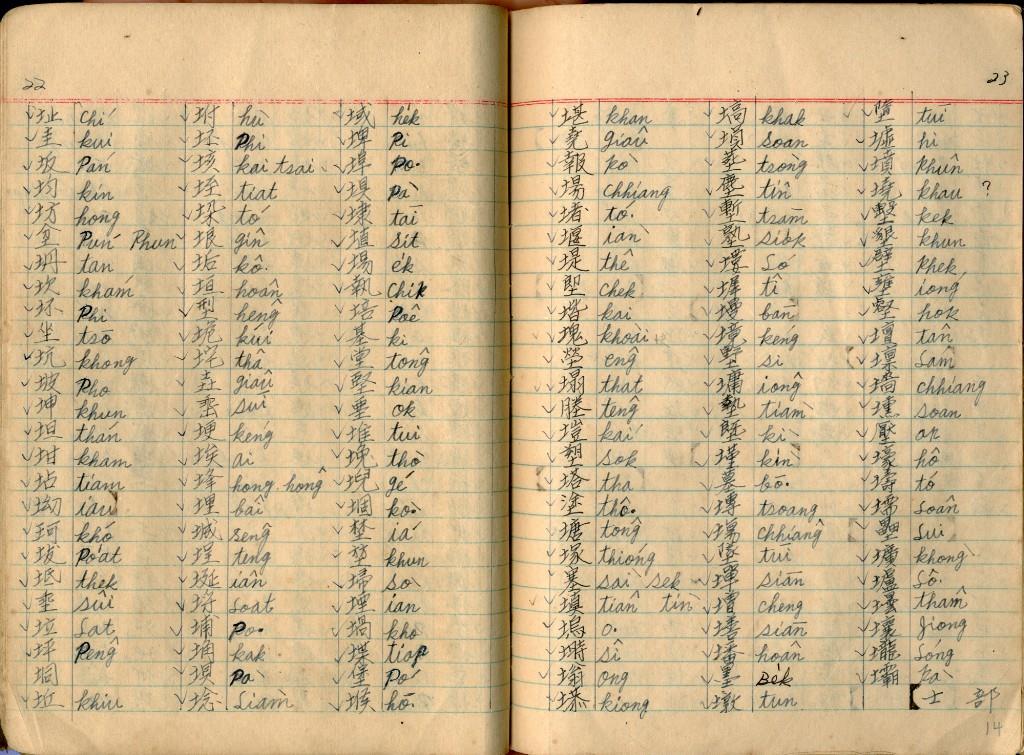 22
址 chí
圭 kui
坂 Pán
均 kin
坊 hong
坌 Pùn Phun
坍 tan
坎 khám
坏 Phi
坐 tsō
坑 khong
坡 Pho
坤 khun
坦 thán
坩 kham
坫 tiàm
坳 iàu
坷 khó
坺 Poat
坻 thek
垂 sûi
垃 Lat
坪 Pêng
垌
垃 khiu
坿 hù
坯 Phi
垓 kai tsai
垤 tiat
垛 tó
垠 gîn
垢 kô
垣 hoân
型 hêng
垝 kúi
垞 thâ
垚 giâu
埀 suî
埂 kéng
埃 ai
埄 hong hông
埋 bâi
城 sêng
埕 têng
埏 iân
埒 Loat
埔 Po
埆 kak
埧 Pà
埝 Liām
域 hék
埤 Pi
埠 Po
埧 Pà
埭 tāi
埴 sit
埸 ék
執 chik
培 Poê
基 ki
堂 tông
堅 kian
堊 ok
堆 tui
堍 thò
堄 gé
堌 kò
埜 iá
堃 khun
埽 sò
堙 ian
堝 kho
堞 tiap
堡 Pó
堠 hō
23
堪 khan
堯 giâu
報 Pò
場 chhiang
堵 tó
堰 ian
堤 thê
堲 chek
堦 kai
塊 khoài
塋 eng
塌 that
塍 têng
塏 kái
塑 sok
塔 tha
塗 thô
塘 tông
塚 thióng
塞 sài sek
填 tiân tîn
塢 o
塒 sî
塕 ong
塨 kiong
塙 khak
塤 soan
塟 tsòng
塵 tîn
塹 tsàm
塾 siok
墁 bān
境 kéng
野 si
墉 iông
墊 tiàm
墍 kì
墐 kìn
墓 bō
塼 tsoang
塲 chhiâng
墜 tui
墠 siān
增 cheng
墡 siān
墦 hoân
墨 Bék
墩 tun
墮 tui
墟 hi
墳 Phûn
墝 khau ?
墼 kek
墾 khun
壁 Phek
壅 ióng
壑 hok
壇 tân
壈 Lám
墻 chhiang
壎 soan
壓 ap
壕 hô
壔 tó
壖 Loân
壘 Lui
壙 khong
壚 Lô
壜 thâm
壤 Jiong
壠 Lóng
壩 Pà
士 部
14